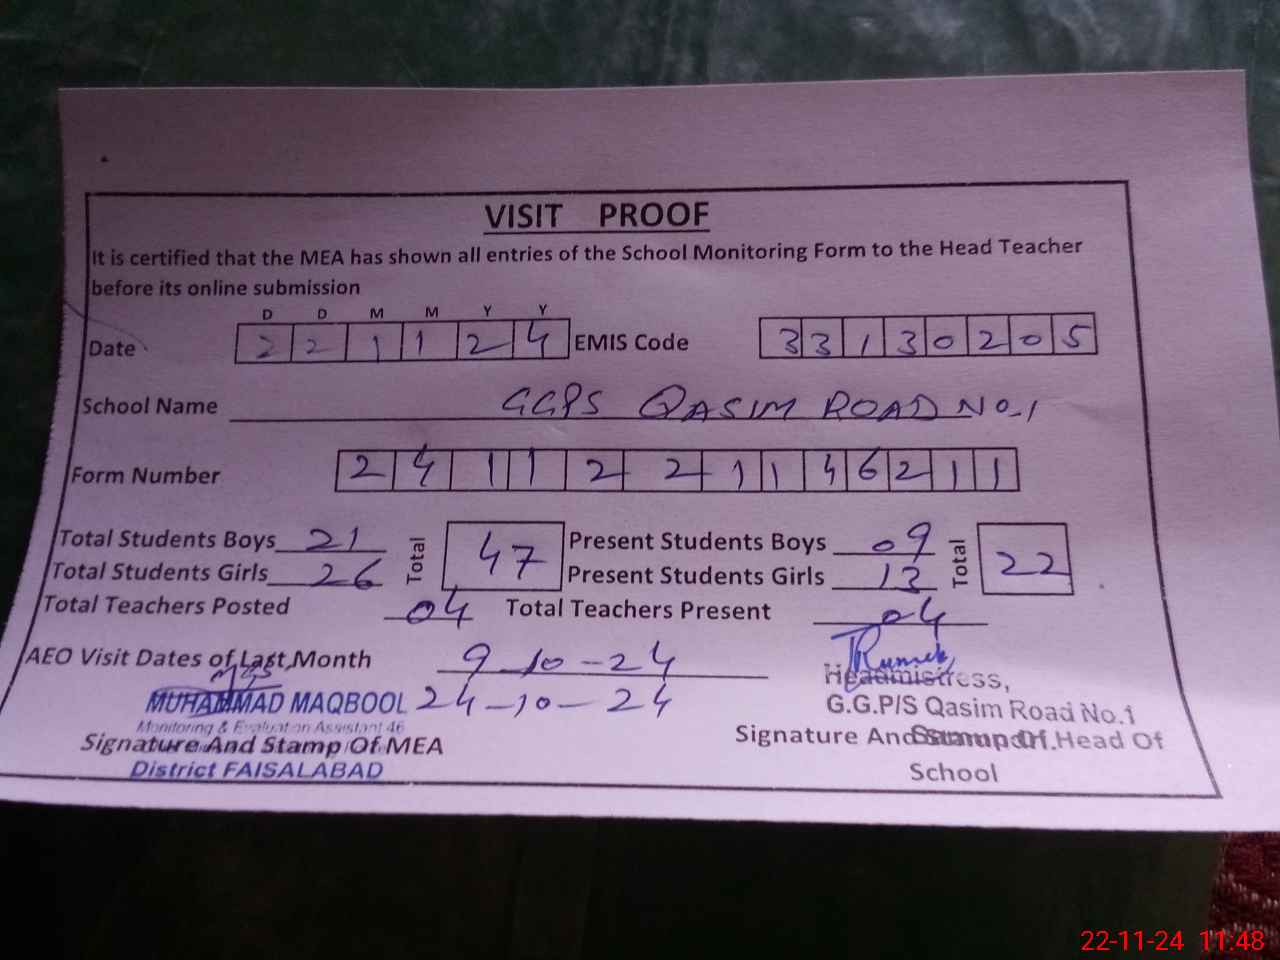 VISIT PROOF
It is certified that the MEA has shown all entries of the School Monitoring Form to the Head Teacher
before its online submission
D D M M Y Y
Date 2 2 1 1 2 4 EMIS Code 3 3 1 3 0 2 0 5
School Name GGPS QASIM ROAD NO.1
Form Number 2 4 1 1 2 2 1 1 4 6 2 1 1
Total Students Boys 21 Total 47 Present Students Boys 09 Total 22
Total Students Girls 26 Present Students Girls 13
Total Teachers Posted 04 Total Teachers Present 04
AEO Visit Dates of Last Month 9-10-24
Headmistress,
MUHAMMAD MAQBOOL 24-10-24 G.G.P/S Qasim Road No.1
Monitoring & Evaluation Assistant 46
Signature And Stamp Of MEA Signature And Stamp Of Head Of
District FAISALABAD School
22-11-24 11:48